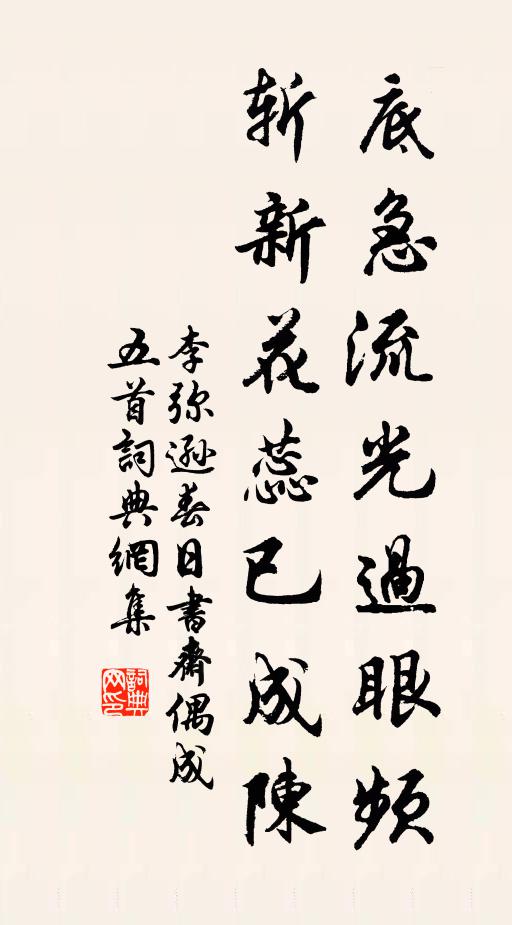 底急流光過眼頻
斬新花蕊已成陳
李弥遜春日書齋偶成
五首詞典網集
詞典
网印